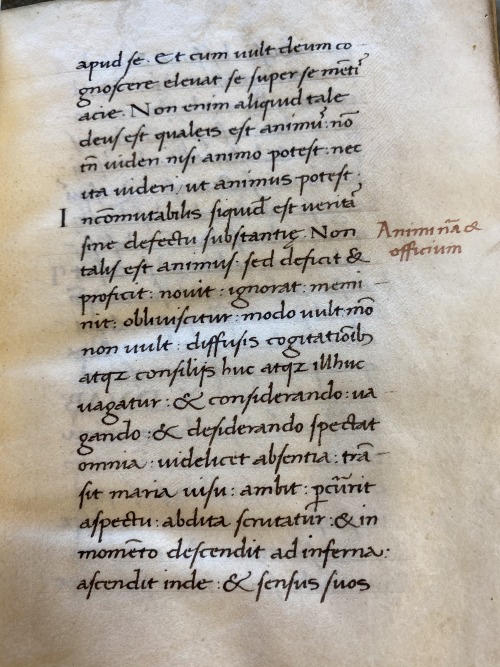 apud se. Et cum uult deum co
gnoscere eleuat se super se mẽti᷒
acie. Non enim aliquid tale
deus est qualeis est animus᷒: nõ
tñ uideri nisi animo potest: nec
ita uideri, ut animus potest.
Incõmutabilis siquid̃ est ueritas᷒
sine defectu substantię. Non
talis est animus: sed deficit &
proficit: nouit: ignorat: memi
nit: obliuiscitur: modo uult mõ
non uult: diffusis cogitatiõib
atqz consilijs huc atqz illhuc
uagatur: & considerando: ua
gando: & desiderando spectat
omnia: uidelicet absentia: trã
sit maria uisu: ambit: ꝑcũrit
aspectu: abdita scrutatũr: & in
momẽto descendit ad inferna:
ascendit inde: & sensus suos
Animi nã &
officium